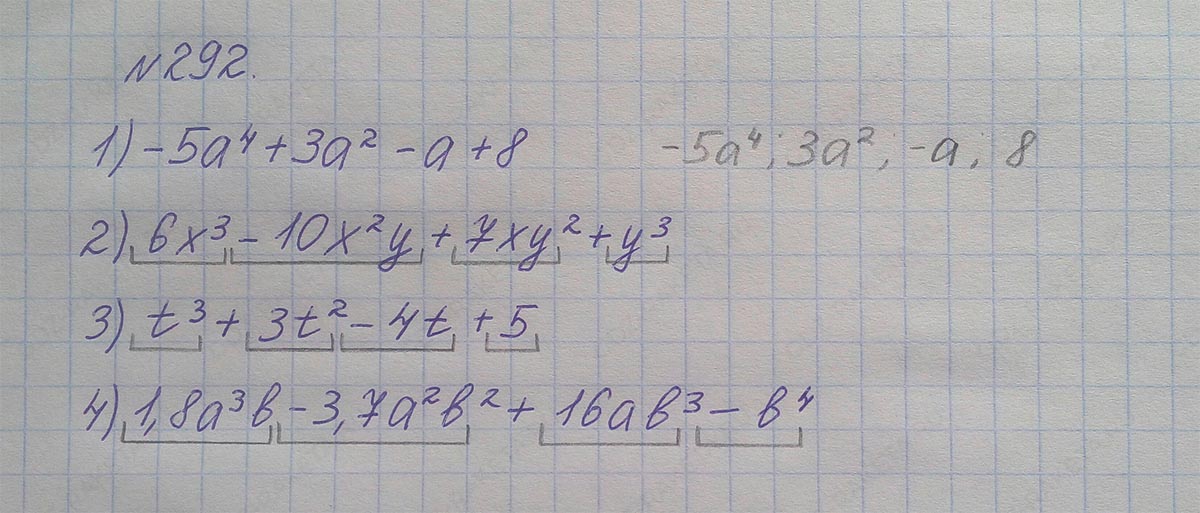 №292.
1) -5a⁴+3a²-a+8 -5a⁴; 3a²; -a; 8
2) 6x³-10x²y+7xy²+y³
3) t³+3t²-4t+5
4) 1,8a³b-3,7a²b²+16ab³-b⁴